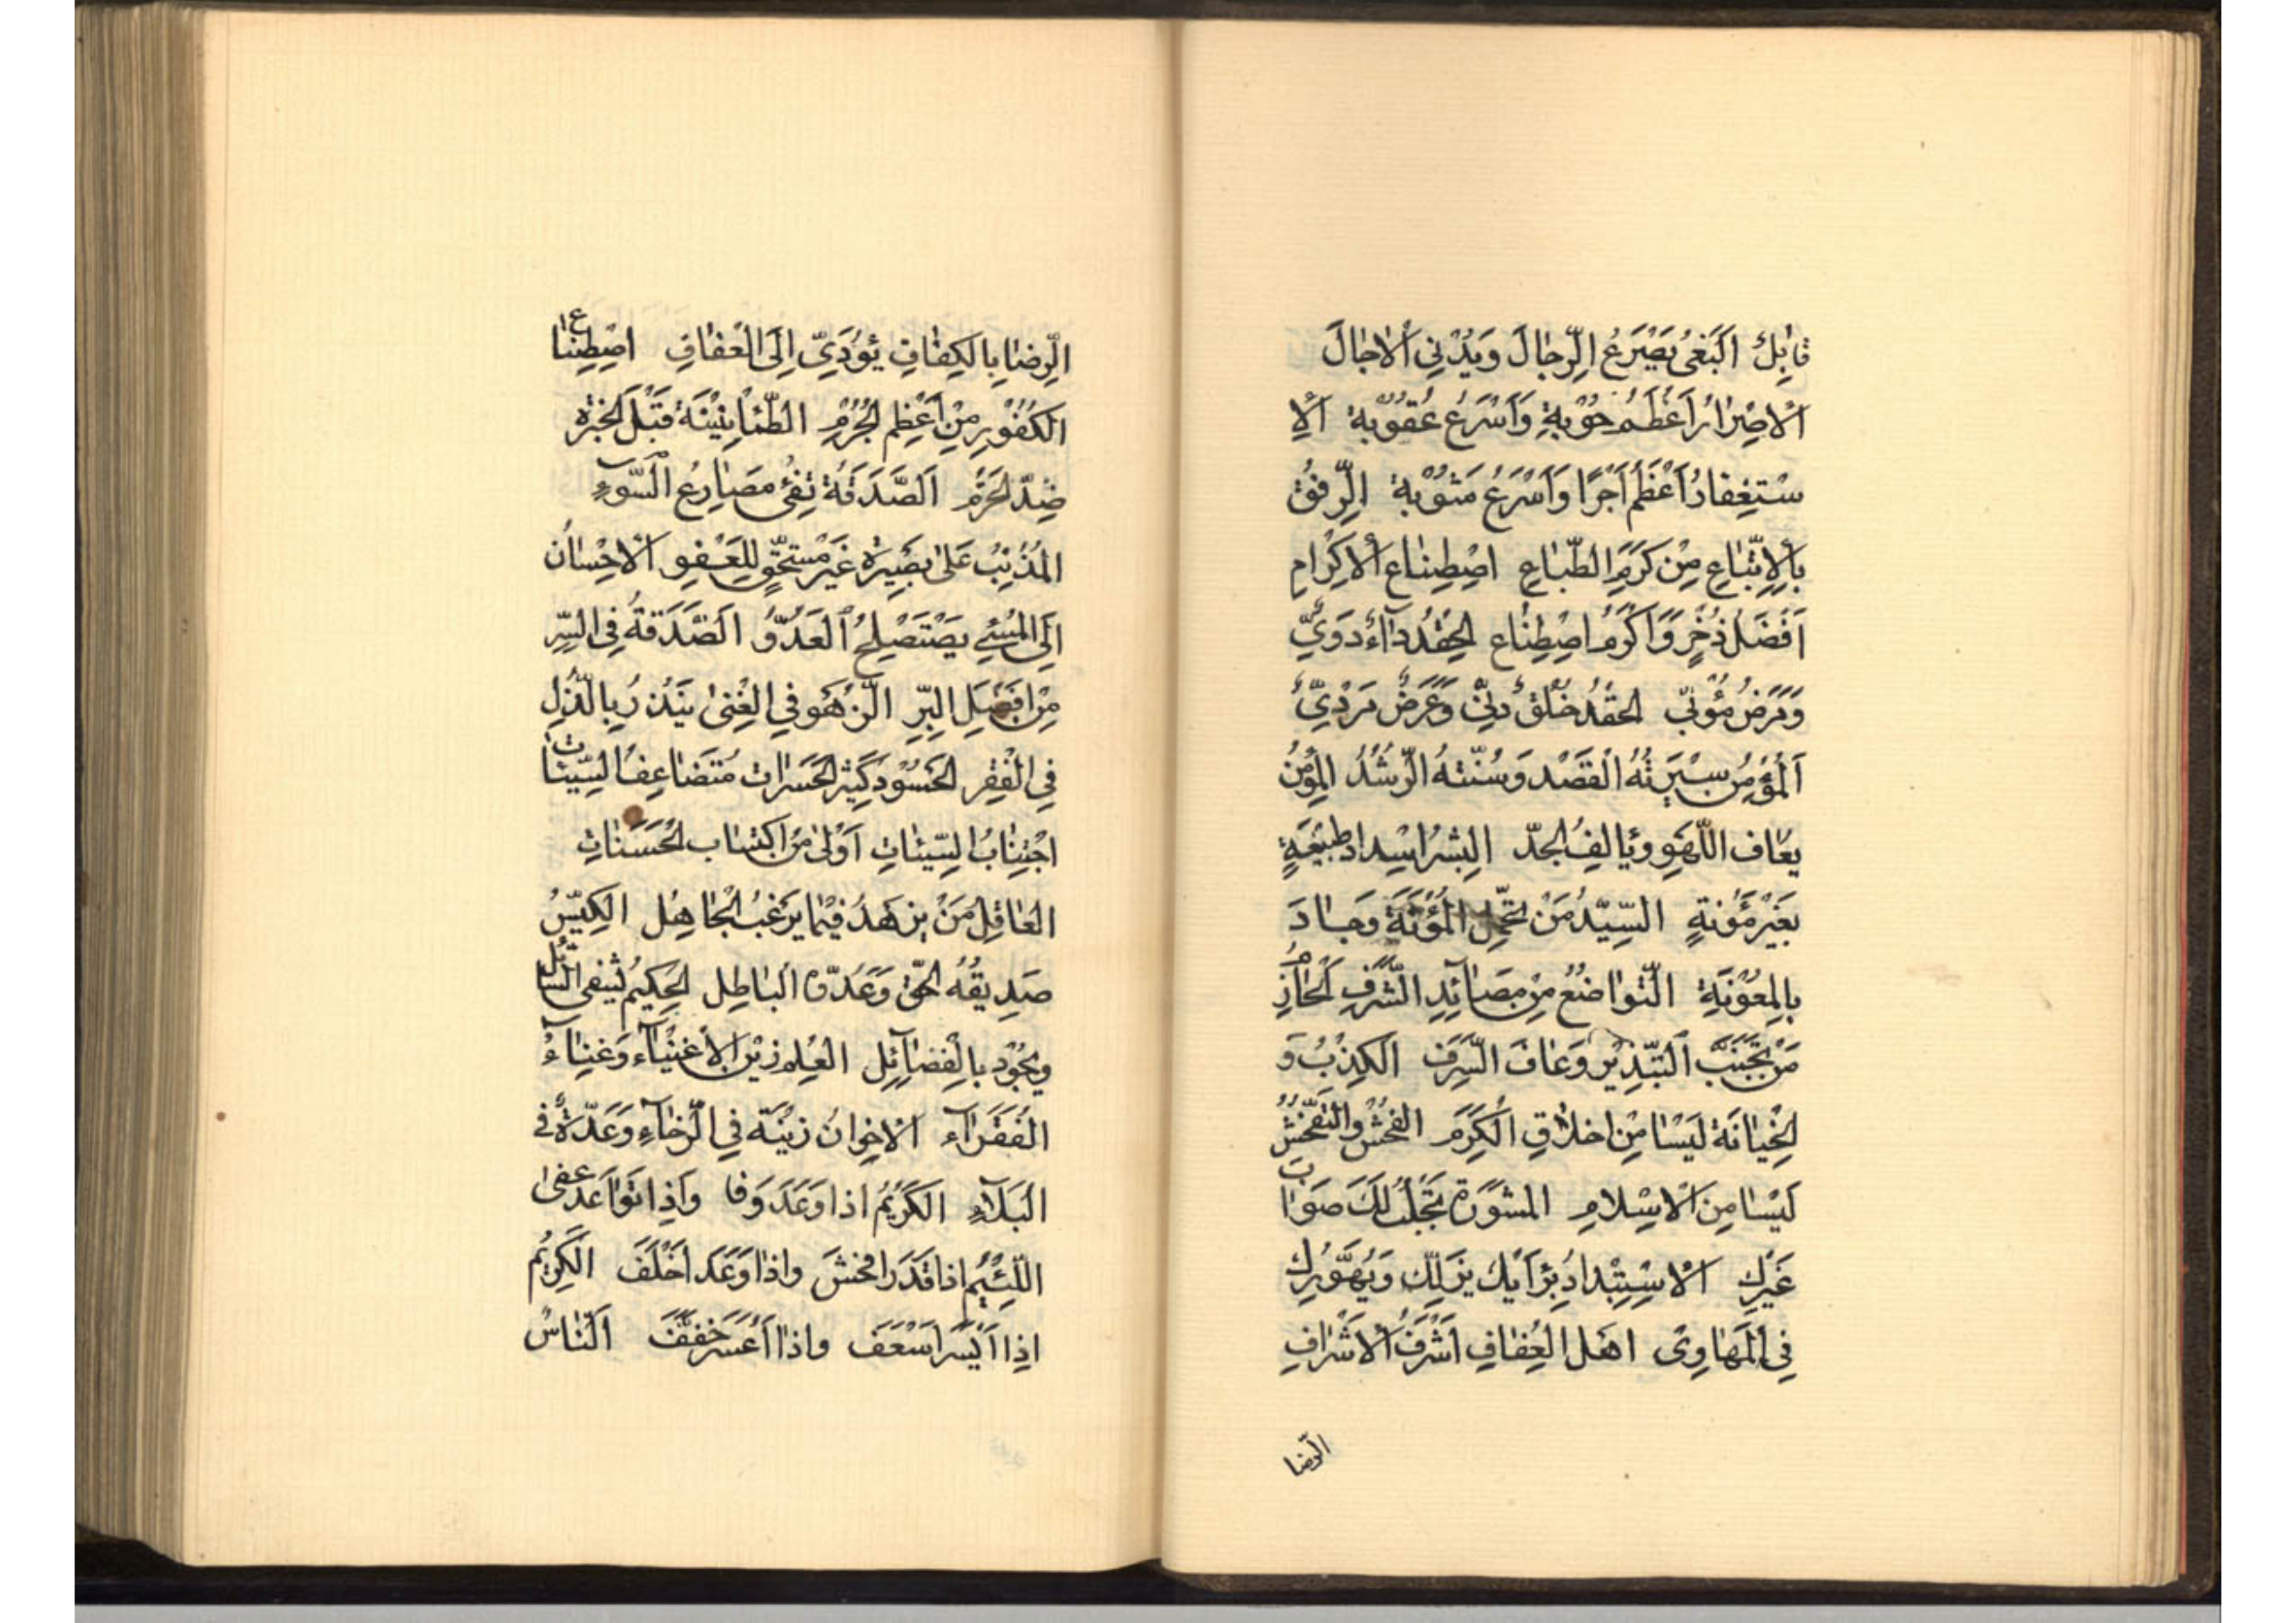 فابك البغى يصرع الرجال ويدنى الاجال
الاصرار اعظم حوبة واسرع عقوبة الا
ستغفار اعظم اجرا واسرع مثوبة الرفق
بالاتباع من كرم الطباع اصطناع الاكرام
افضل ذخر واكرم اصطناع الحقد داء دوي
ومرض موبى الحقد خلق دنى وعرض مردي
المؤمن سيرته القصد وسنته الرشد المؤمن
يعاف اللهو ويالف الجد البشر اسداد طبيعة
بغير مؤنة السيد من تحمل المؤنة وجاد
بالمعونة التواضع من مصائد الشرف الحازم
من تجنب التبذير وعاف السرف الكذب و
الخيانة ليسا من اخلاق الكرم الفحش والتفحش
ليسا من الاسلام المشورة تجلب لك صواب
غيرك الاستبداد برايك يزلك ويهورك
فى المهاوى اهل العفاف اشرف الاشراف
الرضا
الرضا بالكفاف يؤدي الى العفاف اصطناع
الكفور من اعظم الجرم الطمانينة قبل الخبرة
ضد الحزم الصدقة تقى مصارع السوء
المذنب على بصيرة غير مستحق للعفو الاحسان
الى المسئ يصتصلح العدو الصدقة فى السر
من افضل البر الن هو فى الغنى ينذر بالذل
فى الفقر الحسود كثير الحسرات متضاعف السيئات
اجتناب السيئات اولى من اكتساب الحسنات
العاقل من يزهد فيما يرغب الجاهل الكيس
صديقه الحق وعدوه الباطل الحكيم يشفى السائل
ويجود بالفضائل العلم زين الاغنياء وغناء
الفقراء الاخوان زينة فى الرخاء وعدة فى
البلاء الكريم اذا وعد وفا واذا تواعد عفى
اللئيم اذا قدر افحش واذا وعد اخلف الكريم
اذا ايسر اسعف واذا اعسر خفف الناس